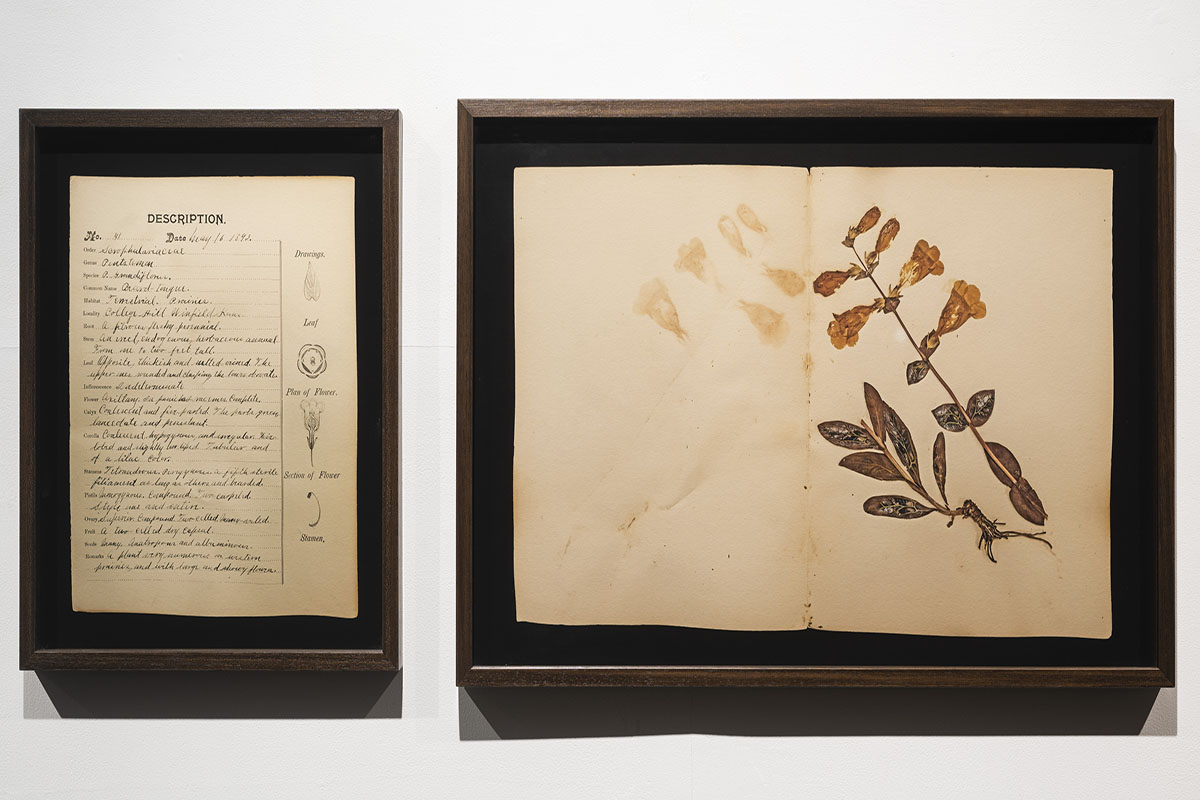 DESCRIPTION.
No. 41 Date May 16 1893.
Order Scrophulariaceae
Genus Pentstemon
Species P. grandiflorus.
Common Name Beard-tongue.
Habitat Terrestrial. Prairies.
Locality College Hill Winfield Kans.
Root A fibrous fleshy perennial.
Stem An erect, endogenous, herbaceous annual
From one to two feet tall.
Leaf Opposite, thickish and netted-veined. The
upper ones rounded and clasping the lower obovate.
Inflorescence Indeterminate
Flower Axillary. In panicled racemes Complete.
Calyx Coalescent and five-parted The parts green
lanceolate and persistent.
Corolla Coalescent, hypogynous, and irregular. Five
lobed and slightly two-lipped Tubular and
of a lilac color.
Stamens Tetrandrous. Perigynous a fifth sterile
filiament as long as others and bearded.
Pistils Compound. Two carpeled
Style one and
Ovary Superior. Compound Two-celled
Fruit A two-celled dry capsul.
Seeds Many Anatropous and albuminous.
Remarks A plant very numerous on western
prairies and with large and showy flowers.
Drawings.
Leaf
Plan of Flower.
Section of Flower
Stamen.